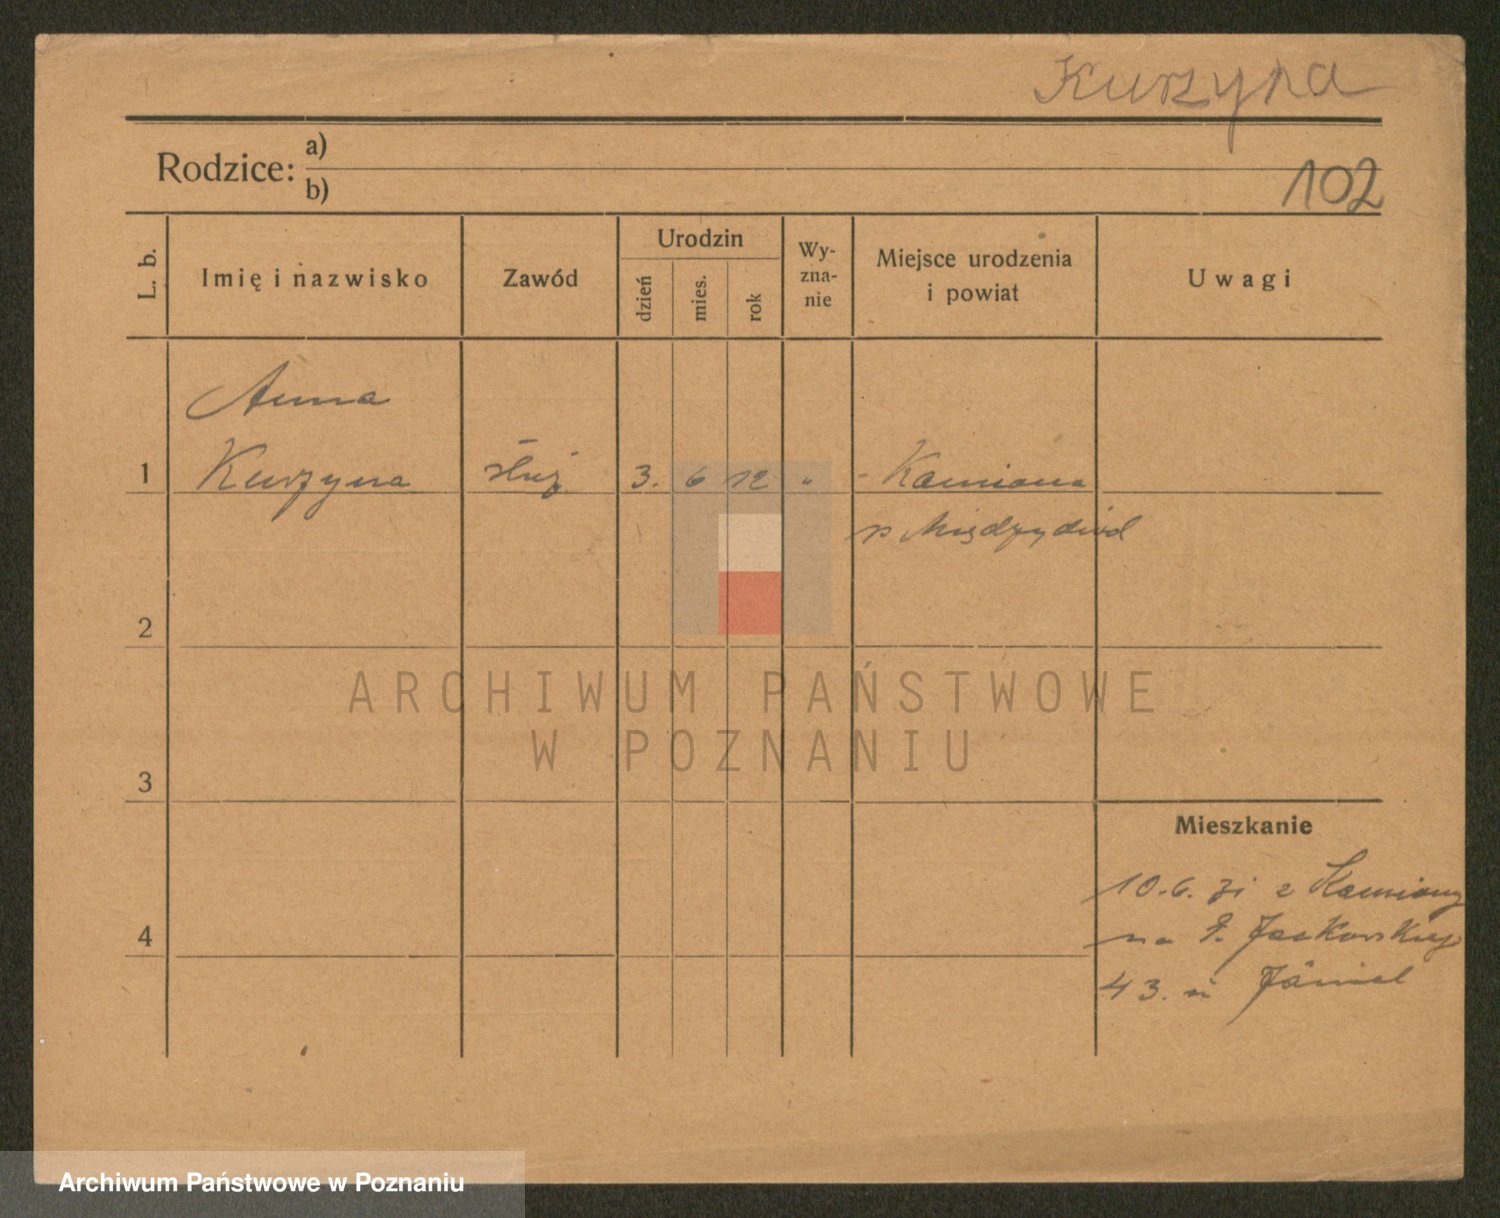 Kurzyna
Rodzice: a)
b)
102
L. b.
Imię i nazwisko
Zawód
Urodzin
dzień
mies.
rok
Wy-
zna-
nie
Miejsce urodzenia
i powiat
Uwagi
Anna
1 Kurzyna służ. 3. 6 12 " - Kamiona
p Międzychód
2
ARCHIWUM PAŃSTWOWE
W POZNANIU
3
Mieszkanie
10.6. z Kamiony
4
na P. Jackowskiego
43.
Archiwum Państwowe w Poznaniu